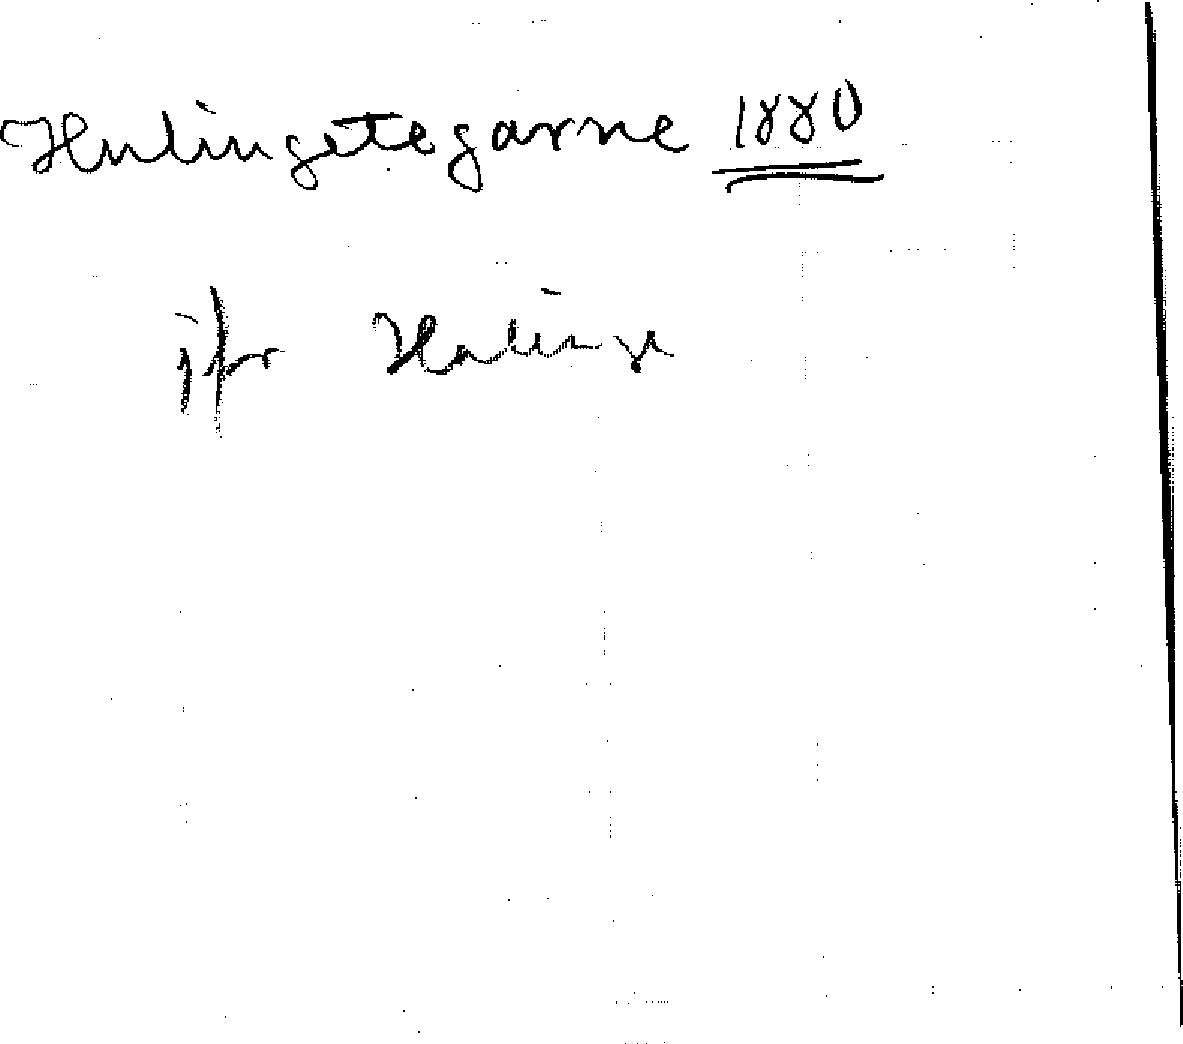 Hulingstegarne 1880
jfr Hulinge